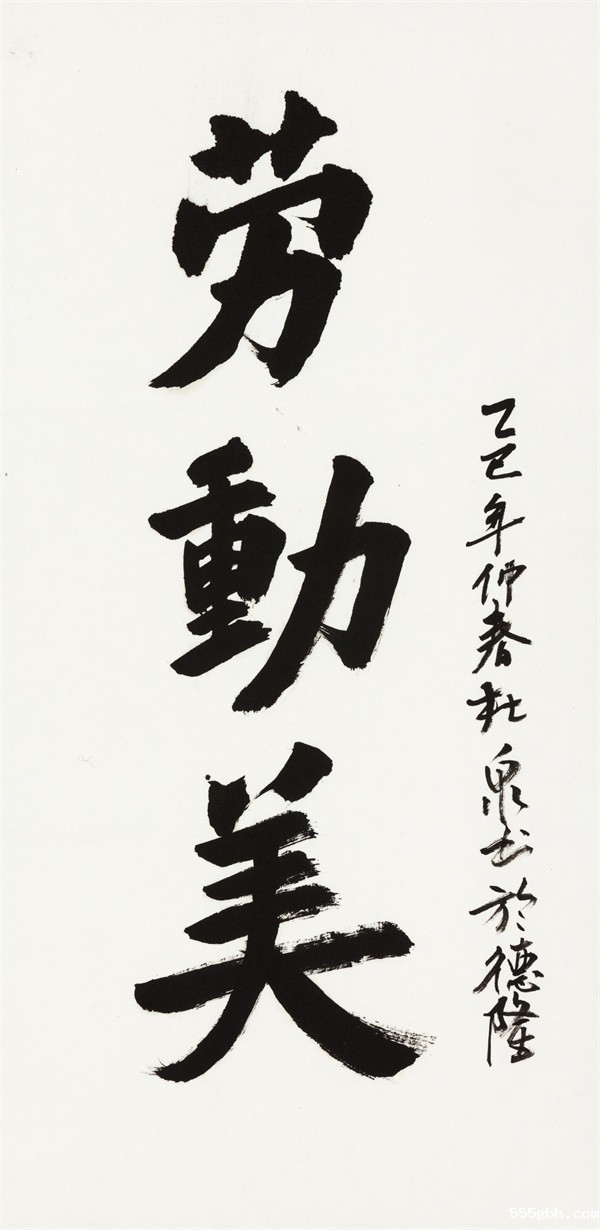 劳動美
乙巳年仲春杜泉书於德隆
555gbh.com